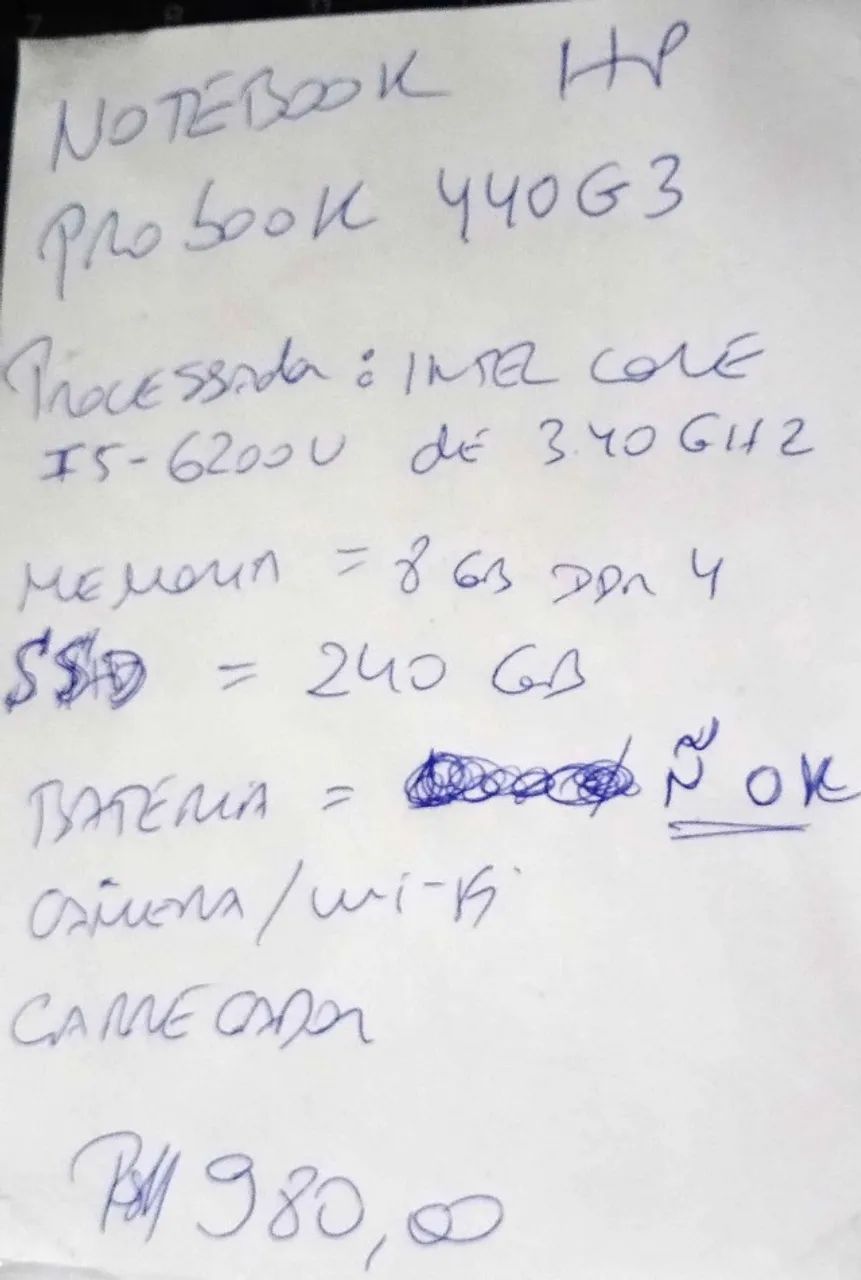 NOTEBOOK HP
PRObOOK 440G3
PROCESSADOR : INTEL CORE
I5-6200U dE 3.40 GHZ
MEMORIA = 8 GB DDR 4
SSD = 240 GB
BATERIA = Ñ OK
CÂMERA / WI-FI
CARREGADOR
R$ 980,00